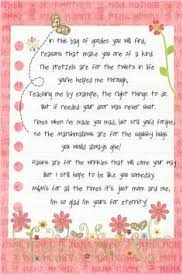 In this bag of goodies you will find,
Reasons that make you one of a kind
The pretzels are for the twists in life
you've helped me through,
Teaching me by example, the right things to do.
But if needed your door was never shut.
Times when I've made you mad, but still you'd forgive,
So the marshmallows are for the squishy hugs
you would always give!
Raisins are for the wrinkles that will come your way
But I still hope to be like you someday
M&M's for all the times it's just mom and me,
I'm so glad I'm yours for eternity!